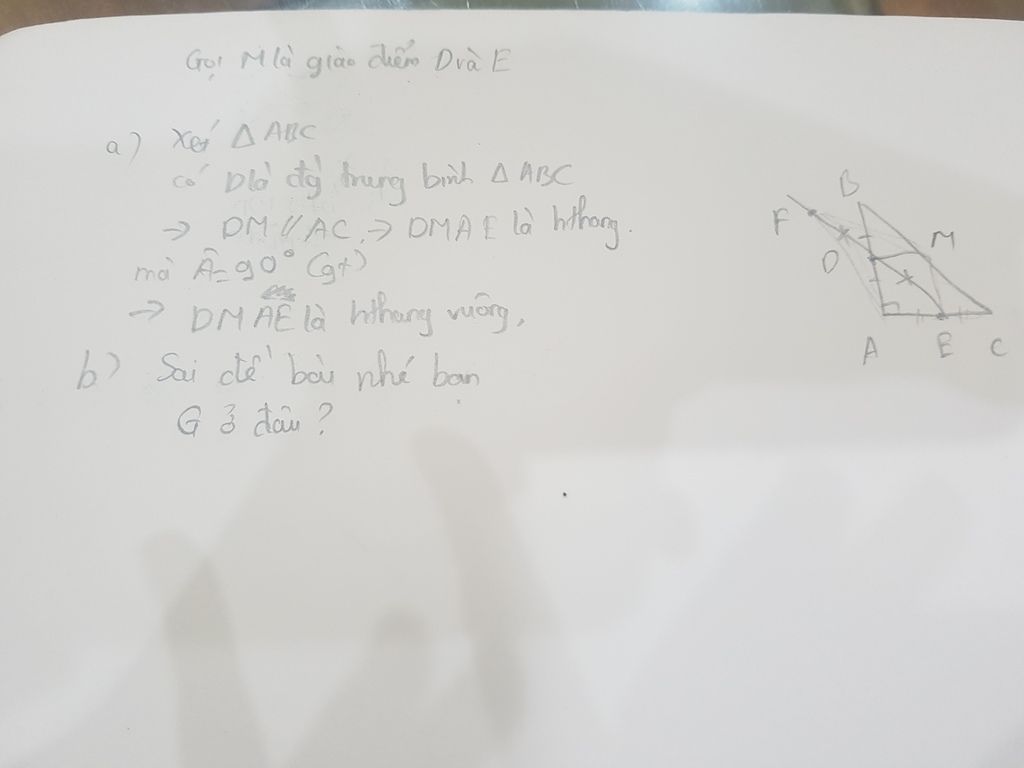 Gọi M là giao điểm D và E
a) Xét △ ABC
có D là đg trung bình △ ABC
→ DM // AC, → DMAE là hthang.
mà Â = 90° (gt)
→ DMAE là hthang vuông,
b) Sai đề bài nhé bạn
G ở đâu ?
B
F
M
D
A E C